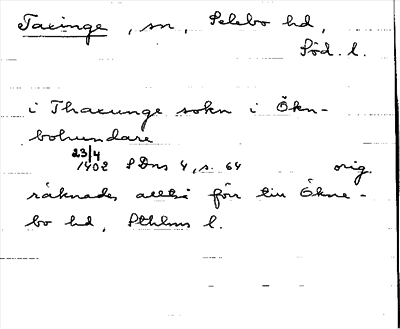 Taxinge, sn, Selebo hd,
Söd. l.
i Thaxunge sokn i Økn-
bohundare
23/4
1402 SDns 4, s. 64 orig.
räknades alltså för tiu Økne-
bo hd, Sthlms l.